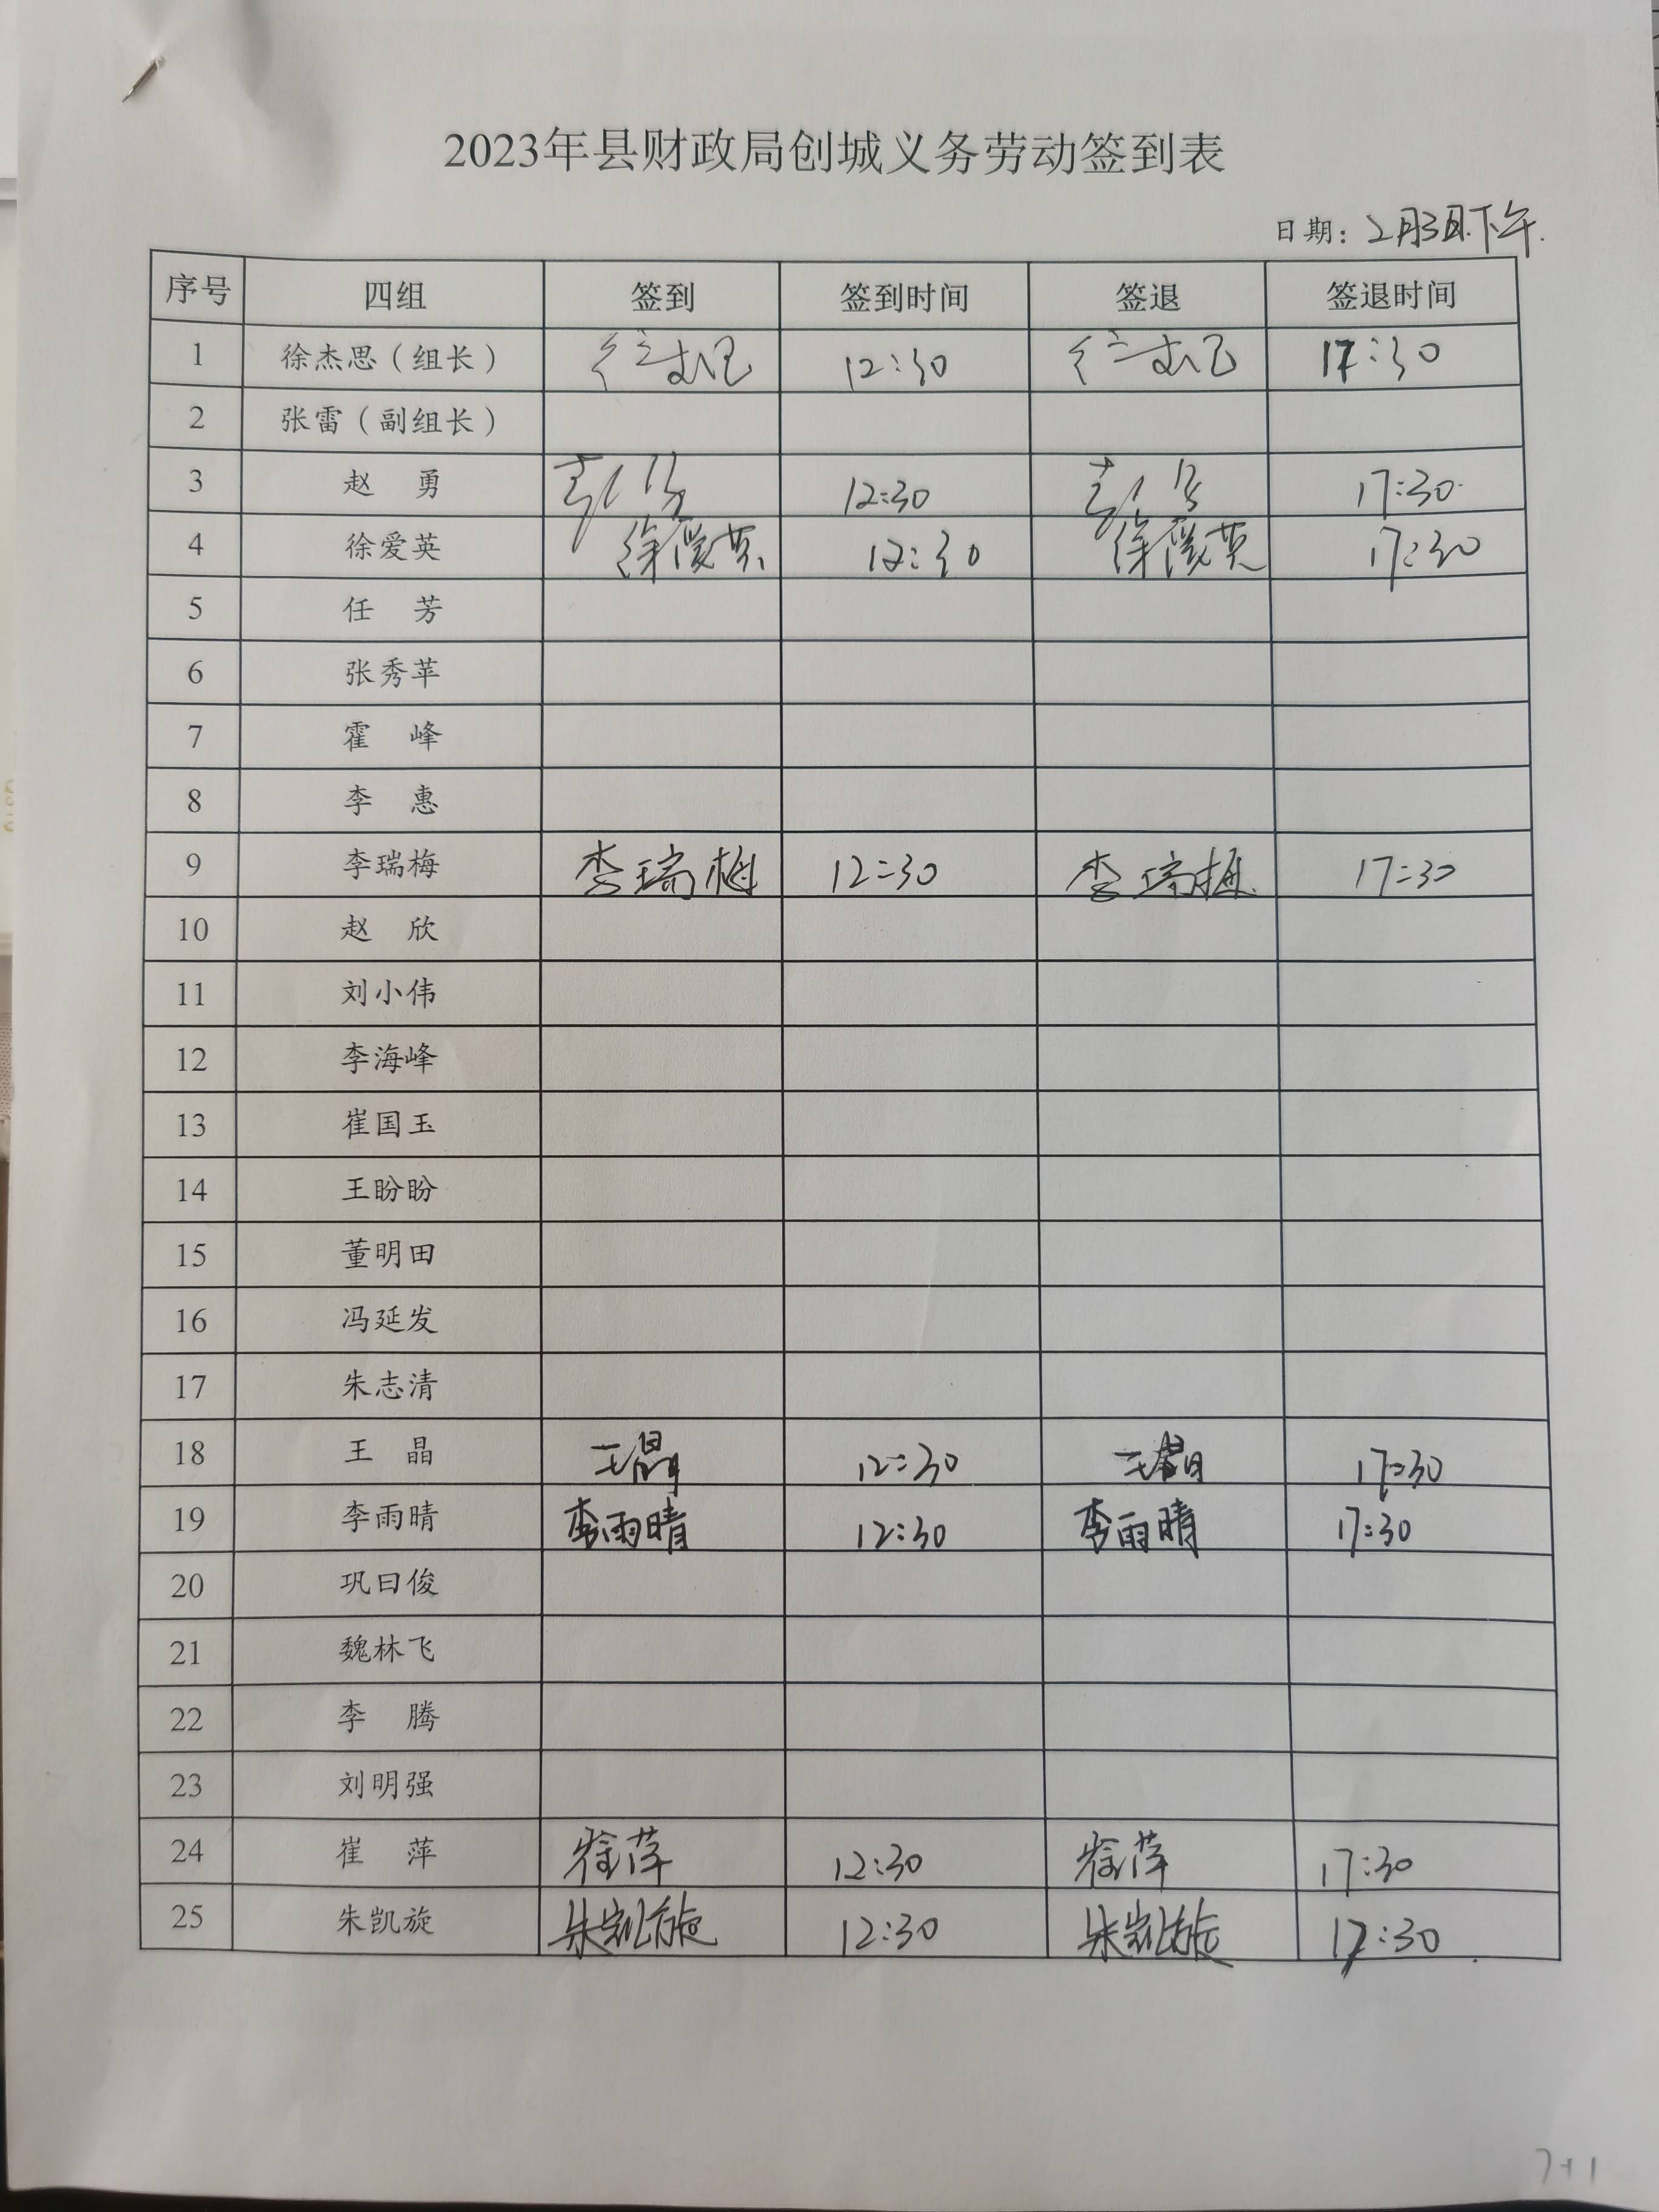 2023年县财政局创城义务劳动签到表
日期：2月3日下午.
序号 四组 签到 签到时间 签退 签退时间
1 徐杰思（组长） 12:30 17:30
2 张雷（副组长）
3 赵 勇 赵勇 12:30 赵勇 17:30
4 徐爱英 徐爱英 12:30 徐爱英 17:30
5 任 芳
6 张秀苹
7 霍 峰
8 李 惠
9 李瑞梅 李瑞梅 12:30 李瑞梅 17:30
10 赵 欣
11 刘小伟
12 李海峰
13 崔国玉
14 王盼盼
15 董明田
16 冯延发
17 朱志清
18 王 晶 王晶 12:30 王晶 17:30
19 李雨晴 李雨晴 12:30 李雨晴 17:30
20 巩曰俊
21 魏林飞
22 李 腾
23 刘明强
24 崔 萍 崔萍 12:30 崔萍 17:30
25 朱凯旋 朱凯旋 12:30 朱凯旋 17:30
7+1